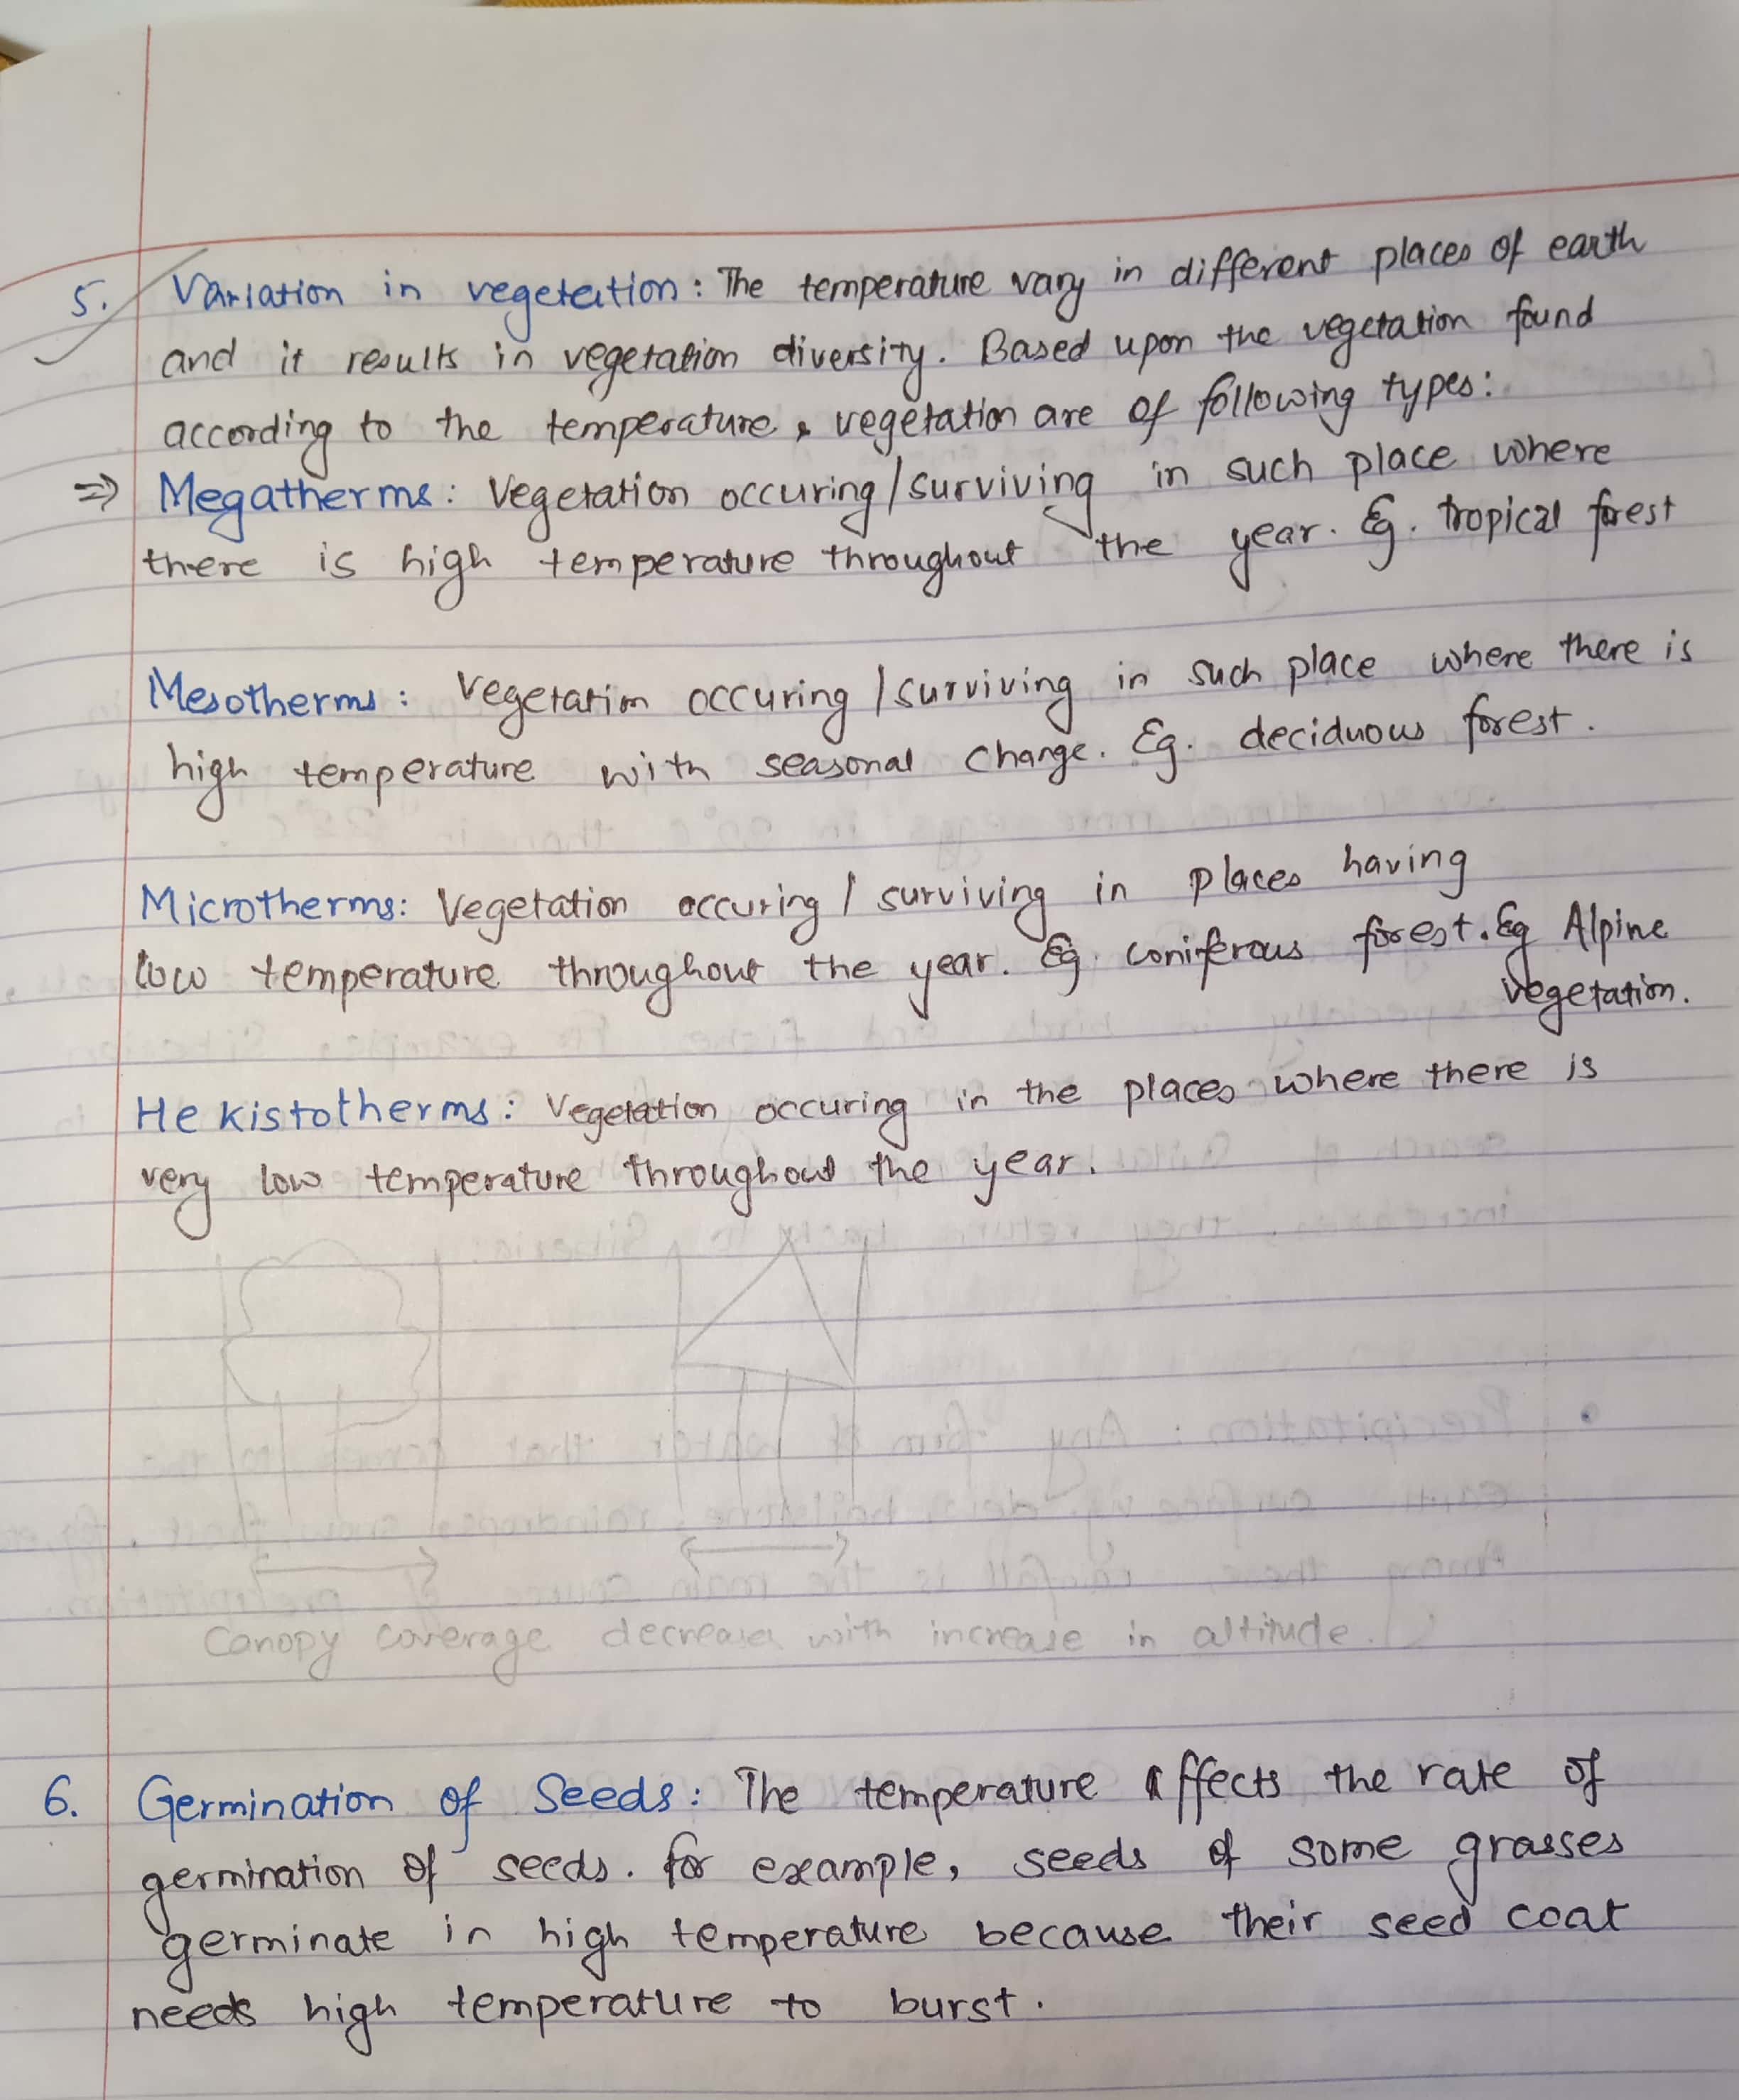 5. Variation in vegetation: The temperature vary in different places of earth
and it results in vegetation diversity. Based upon the vegetation found
according to the temperature, vegetation are of following types:
⇒ Megatherms: Vegetation occuring/surviving in such place where
there is high temperature throughout the year. Eg. tropical forest
Mesotherms: Vegetation occuring/surviving in such place where there is
high temperature with seasonal change. Eg. deciduous forest.
Microtherms: Vegetation occuring/surviving in places having
low temperature throughout the year. Eg. coniferous forest. Eg Alpine
vegetation.
Hekistotherms: Vegetation occuring in the places where there is
very low temperature throughout the year.
Canopy coverage decreases with increase in altitude.
6. Germination of Seeds: The temperature affects the rate of
germination of seeds. for example, seeds of some grasses
germinate in high temperature because their seed coat
needs high temperature to burst.